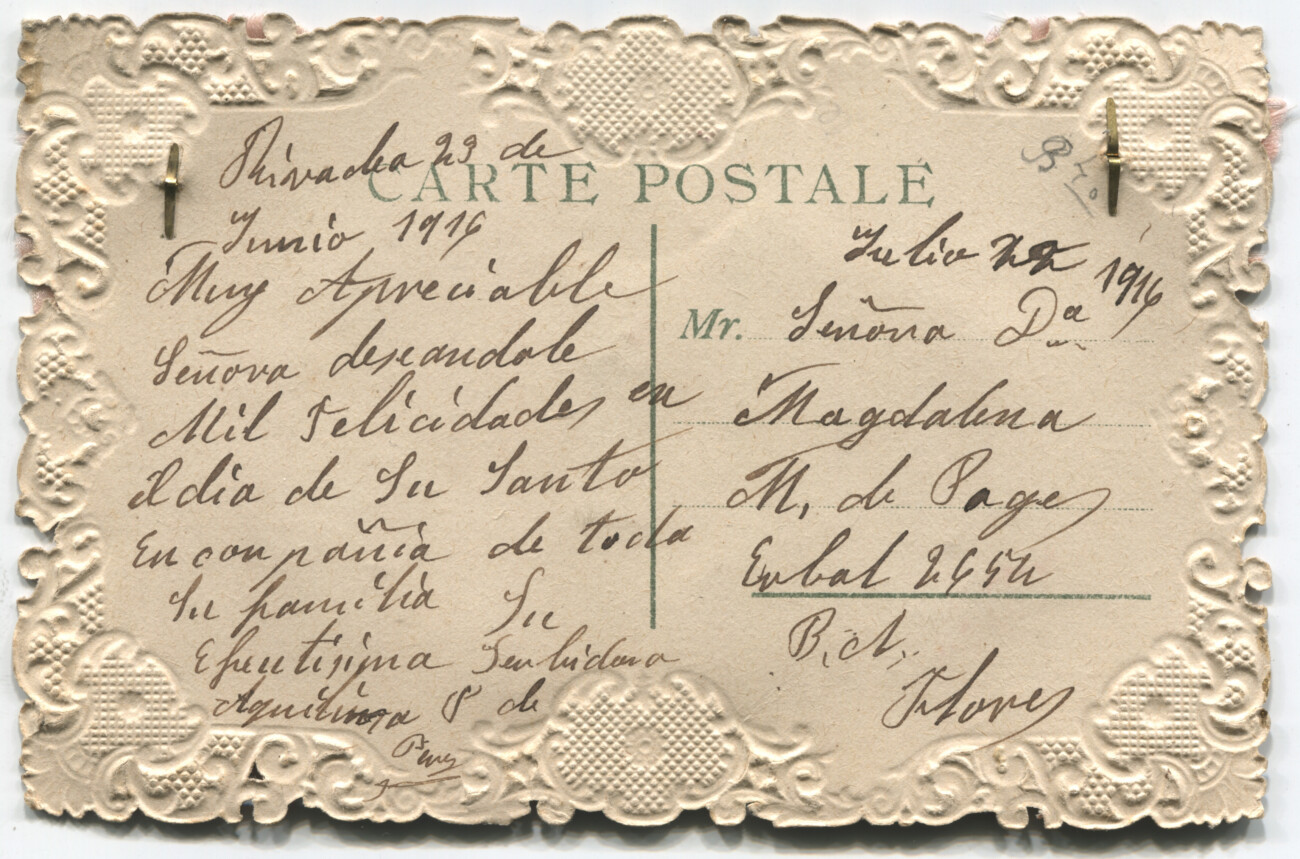 CARTE POSTALE
Rivadea 23 de
Junio 1916
Muy Apreciable
Señora deseandole
Mil Felicidades en
el dia de Su Santo
En conpañia de toda
Su familia Su
Efeutisima Serbidora
Aquilina P de
Perez
Julio 22 1916
Mr. Señora Da
Magdalena
M, de Pages
2654
B. A,
Flores